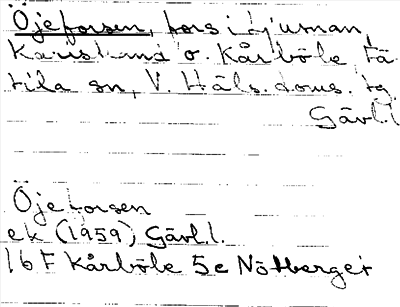 Öjeforsen, fors i Ljusnan,
o. Kårböle, Fä
rila sn, V. Häls. doms. tg.
Gävl.l
Öjeforsen
ek (1959) Gävl.l.
16 F Kårböle 5c Nötberget